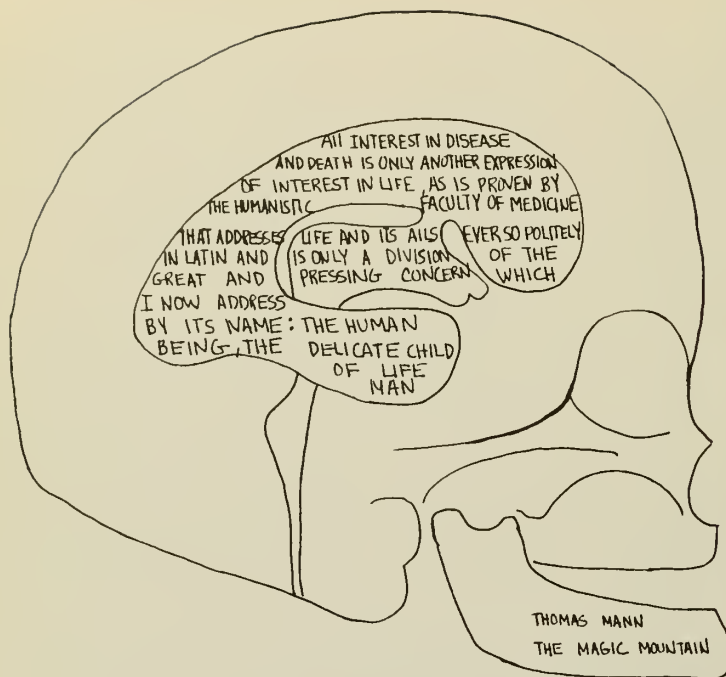 All INTEREST IN DISEASE
AND DEATH IS ONLY ANOTHER EXPRESSION
OF INTEREST IN LIFE, AS IS PROVEN BY
THE HUMANISTIC FACULTY OF MEDICINE
THAT ADDRESSES LIFE AND ITS AILS EVER SO POLITELY
IN LATIN AND IS ONLY A DIVISION OF THE
GREAT AND PRESSING CONCERN WHICH
I NOW ADDRESS
BY ITS NAME: THE HUMAN
BEING, THE DELICATE CHILD
OF LIFE
MAN
THOMAS MANN
THE MAGIC MOUNTAIN